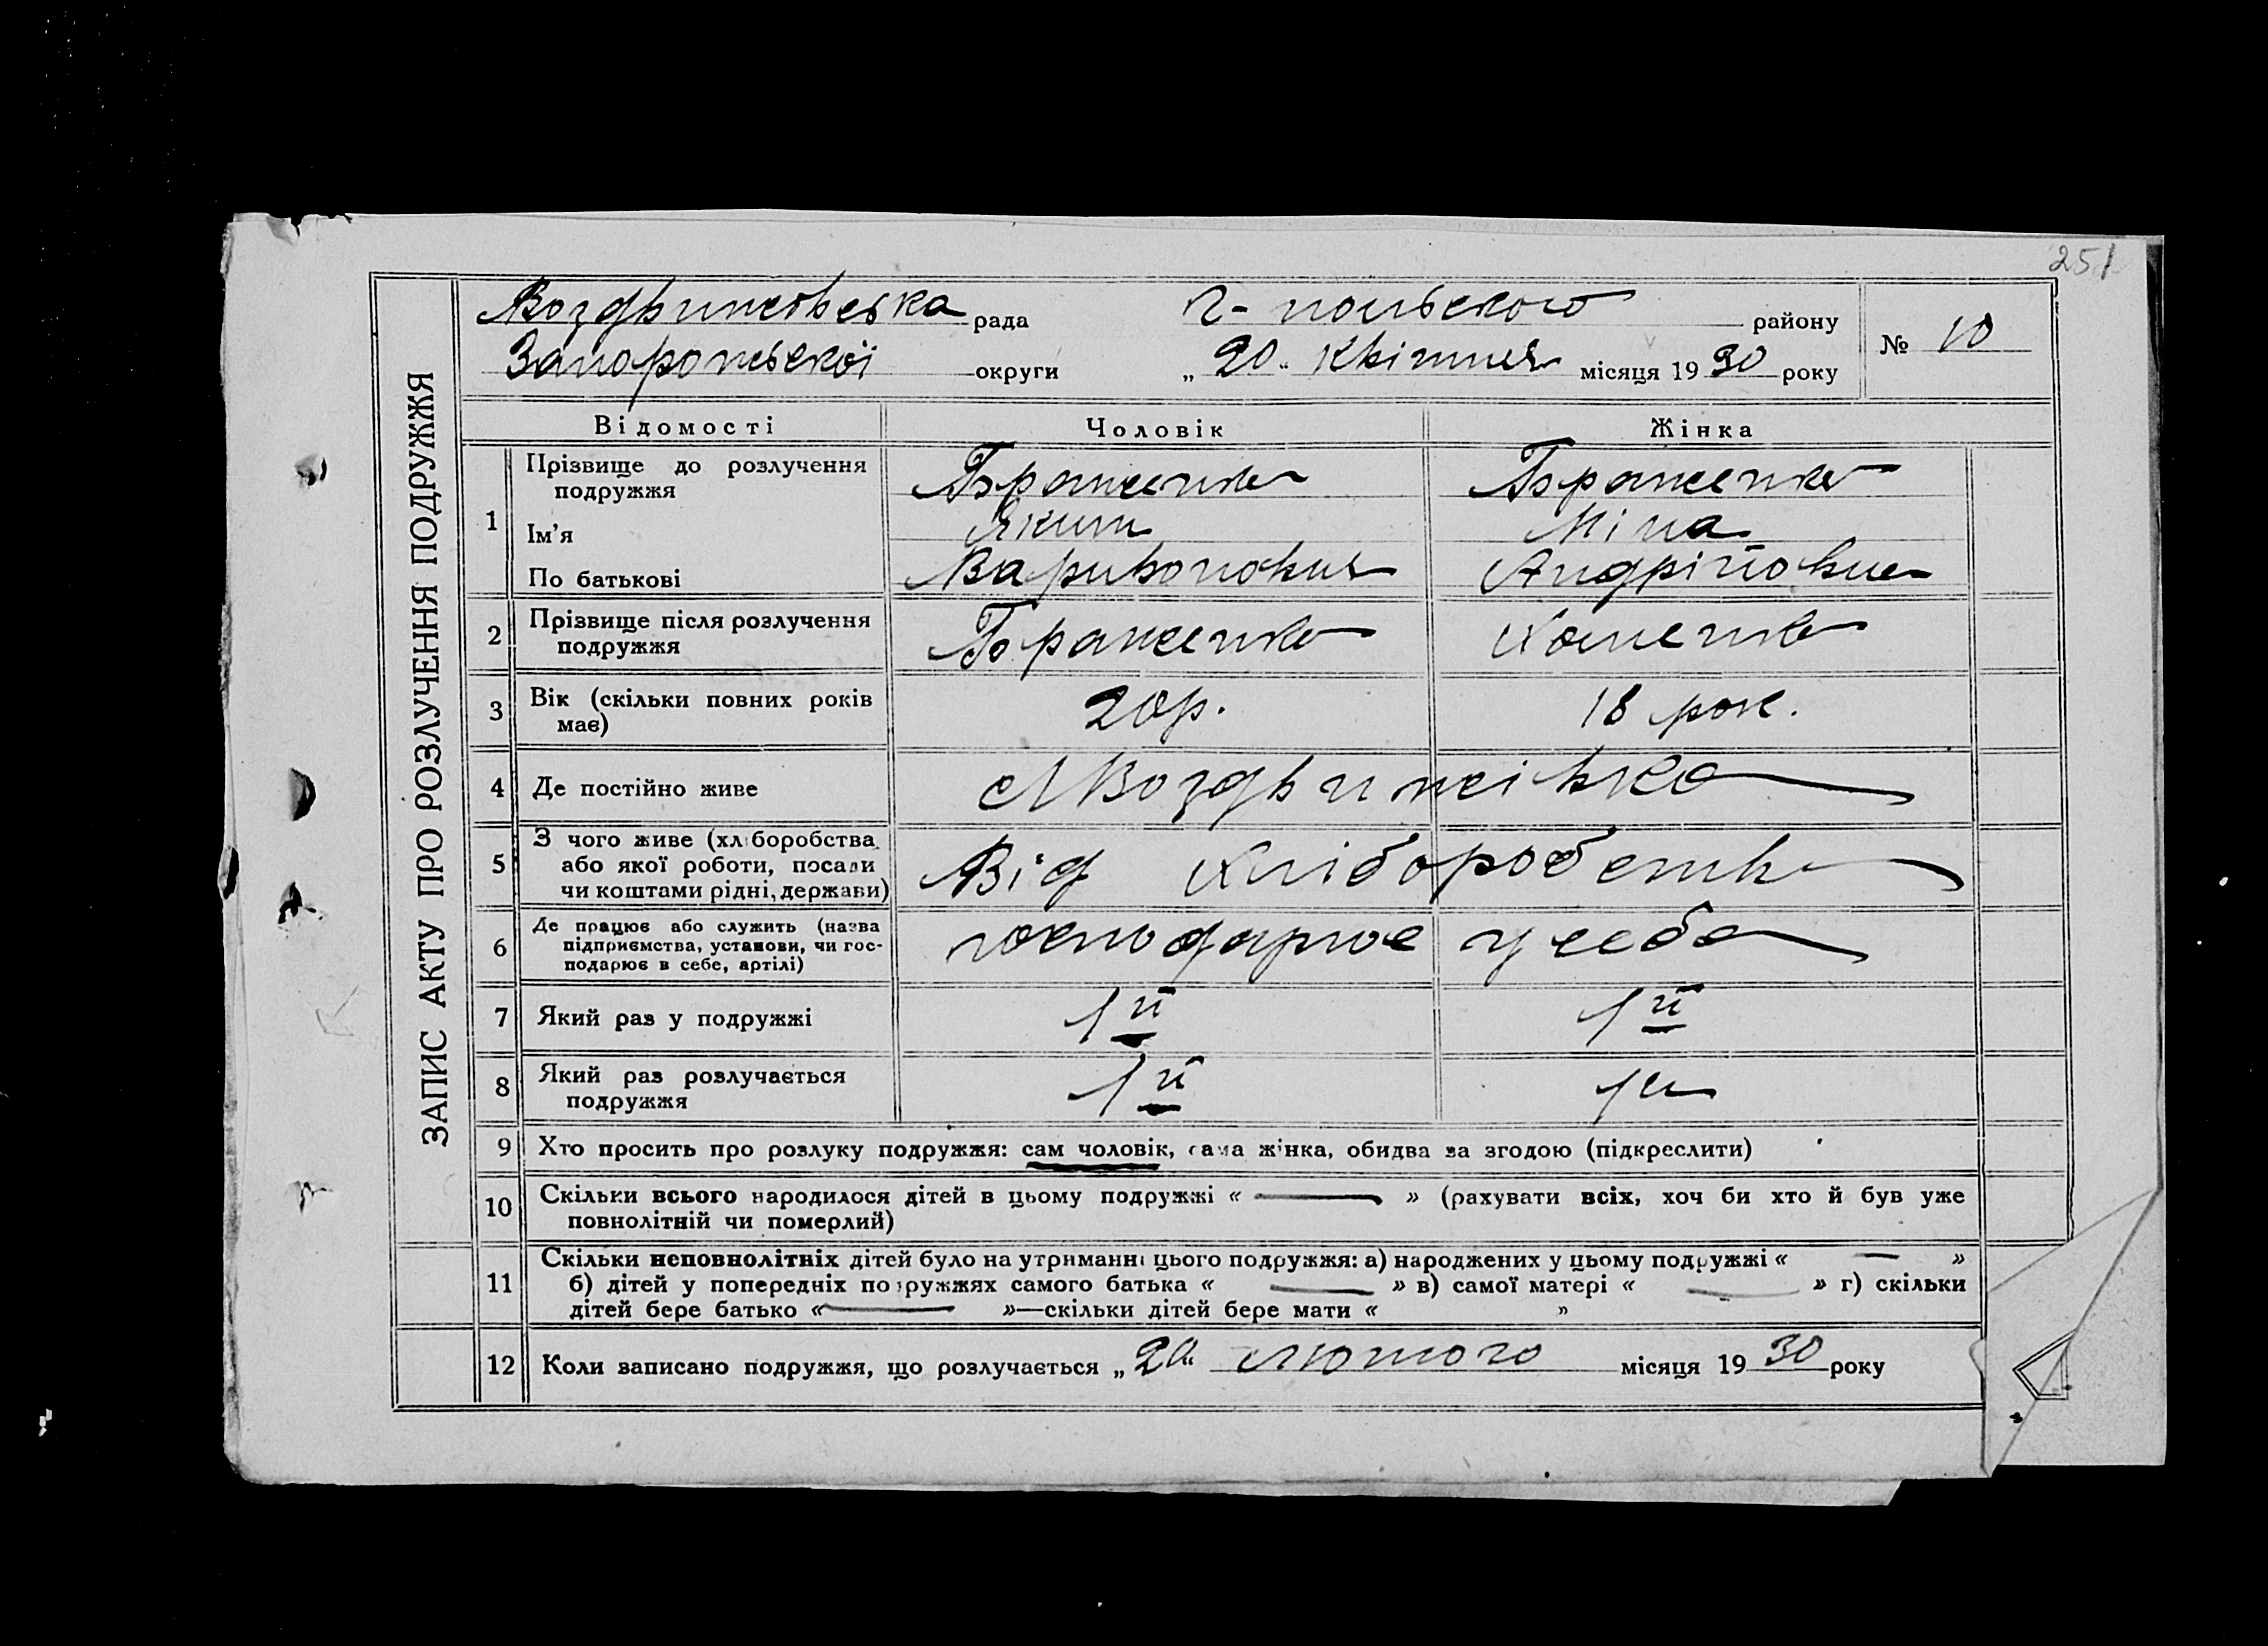 251
ЗАПИС АКТУ ПРО РОЗЛУЧЕННЯ ПОДРУЖЖЯ
Воздвижевська рада Г-польского району
Запорожської округи „20“ квітня місяця 1930 року
№ 10
Відомості Чоловік Жінка
1 Прізвище до розлучення Браженко Браженко
подружжя
Ім'я Яким
По батькові Варивонович Андріївна
2 Прізвище після розлучення Браженко Хоменко
подружжя
3 Вік (скільки повних років 20 р. 18 рок.
має)
4 Де постійно живе с Воздвижівка
5 З чого живе (хліборобства Від хліборобства
або якої роботи, посади
чи коштами рідні, держави)
6 Де працює або служить (назва господарює у себе
підприємства, установи, чи гос-
подарює в себе, артілі)
7 Який раз у подружжі 1й 1й
8 Який раз розлучається 1й 1й
подружжя
9 Хто просить про розлуку подружжя: сам чоловік, сама жінка, обидва за згодою (підкреслити)
10 Скільки всього народилося дітей в цьому подружжі « — » (рахувати всіх, хоч би хто й був уже
повнолітній чи померлий)
11 Скільки неповнолітніх дітей було на утриманні цього подружжя: а) народжених у цьому подружжі « — »
б) дітей у попередніх подружжях самого батька « — » в) самої матері « — » г) скільки
дітей бере батько « — »—скільки дітей бере мати « »
12 Коли записано подружжя, що розлучається „ лютого місяця 1930 року